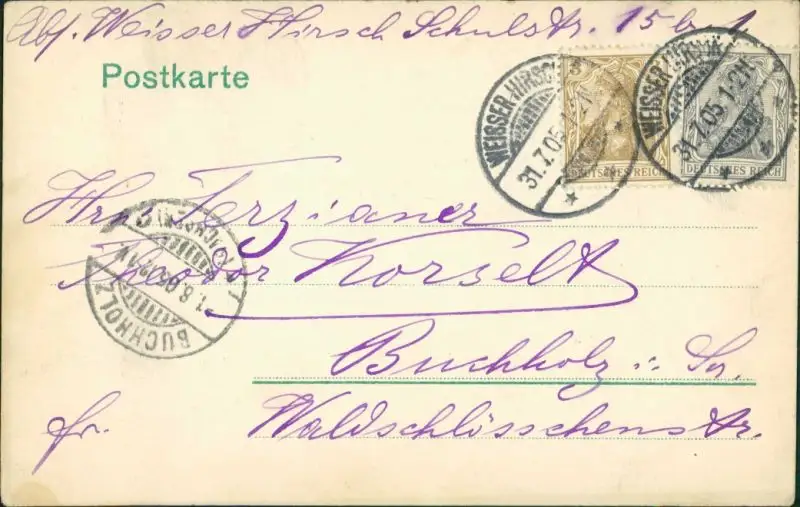 Abs. Weisser Hirsch Schulstr. 15 b. 1
Postkarte
3
WEISSER-HIRSCH
31.7.05.1-2N.
DEUTSCHES REICH
WEISSER-HIRSCH
31.7.05.1-2N.
DEUTSCHES REICH
Hrn Terzianer
Theodor Korselt
BUCHHOLZ
1.8.05
Buchholz i. Sa.
fr. Waldschlösschenstr.